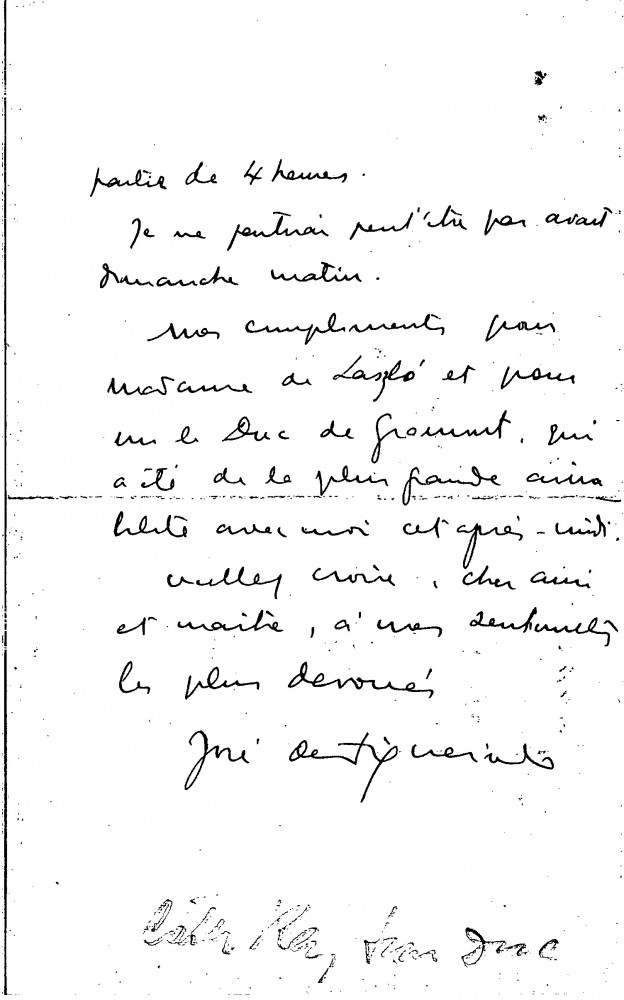 partir de 4 heures.
Je ne partirai peut'être pas avant
dimanche matin.
Mes compliments pour
Madame de László et pour
le Duc de Gramont, qui
a été de la plus grande ama
bilité avec moi cet après-midi.
Veuillez croire, cher ami
et maitre, à mes sentiments
les plus devoués
José de Figueiredo
Duc